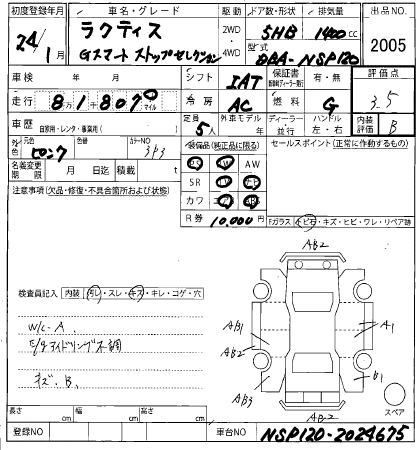 初度登録年月 車名・グレード 駆動 ドア数・形状 排気量 出品NO.
24/1 ラクティス 2WD・4WD 5HB 1400cc 2005
Gスマートストップセレクション 型式 DBA-NSP120
車検 年 月 シフト IAT 保証書 有・無 評価点
走行 8万1807マイル 冷房 AC 燃料 G 3.5
車歴 自家用・レンタ・事業用( ) 定員 5人 外車モデル 年 ディーラー・並行 ハンドル 左・右 内装評価 B
外色 元色 ピンク 色番 カラーNO 3P3 装備品(純正品に限る) セールスポイント(正常に作動するもの)
PS PW AW
名義変更期限 月 日迄 積載 t SR エアB
注意事項(欠品・修復・不具合箇所および状態) カワ ABS
R券 10,000円
Fガラス トビ石・キズ・ヒビ・ワレ・リペア跡
AB2
検査員記入 内装 汚レ・スレ・キズ・キレ・コゲ・穴
W/C-A
E/gアイドリング不調
キズ.B.
AB1
A1
AB2
B1
AB3
AB2
スペア
長さ cm 幅 cm 高さ cm
登録NO 車台NO NSP120-2024675